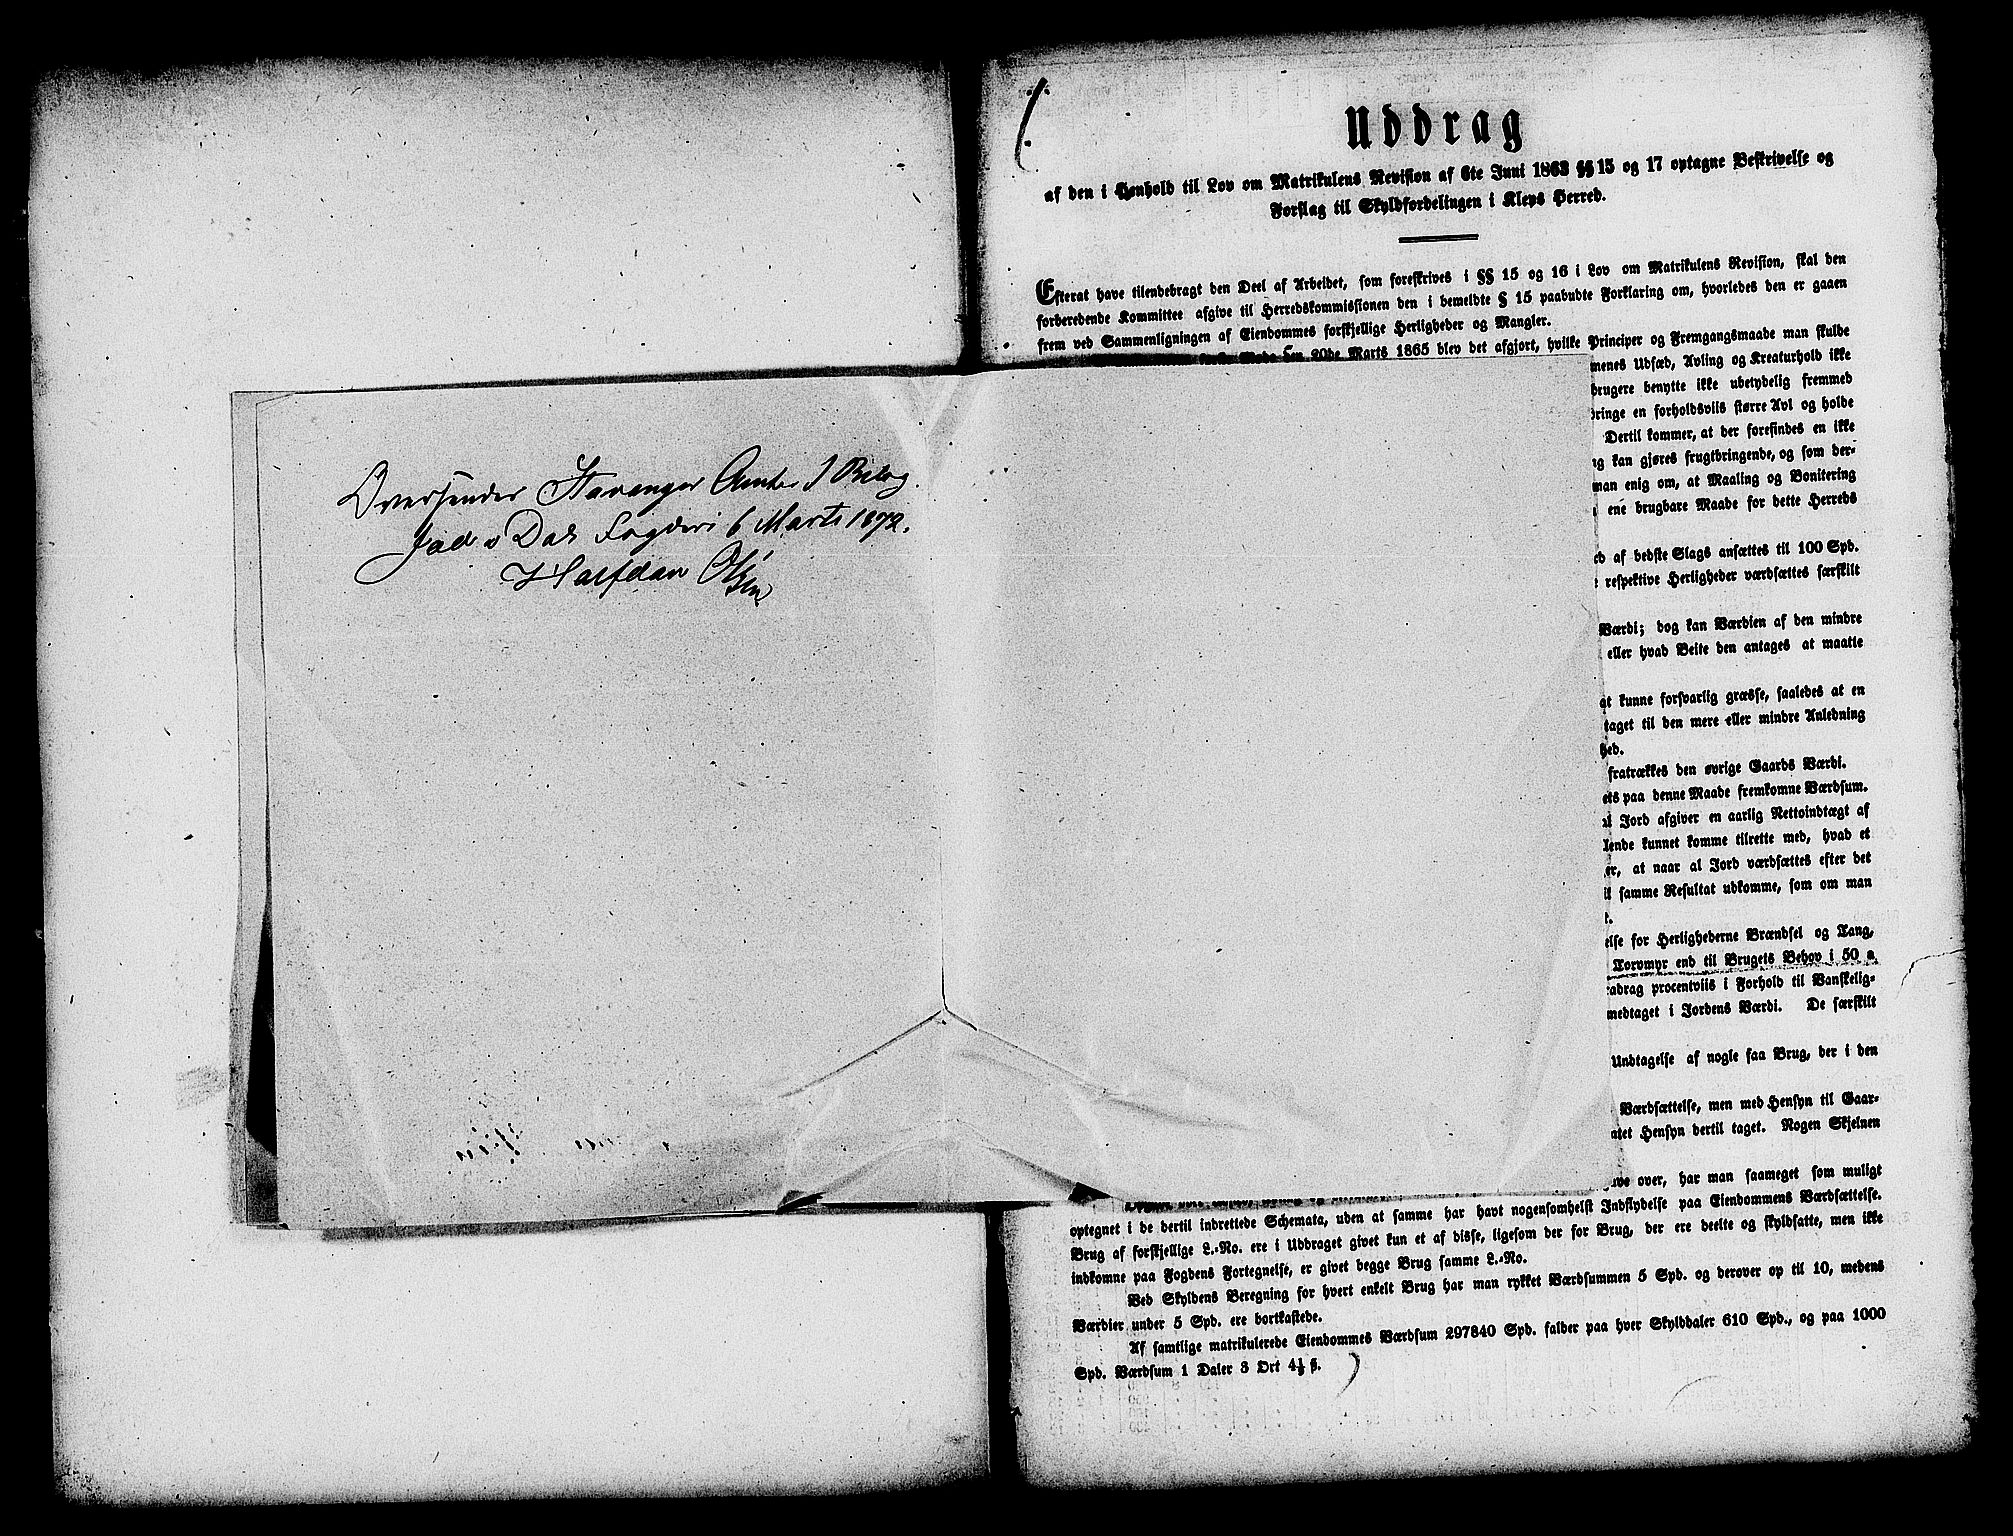 Oversendes Stavanger Amt. 1 Bilag.
Jæd. o Dal. Fogderi 6 Marts 1872.
Halfdan Olsen
Uddrag
af den i Henhold til Lov om Matrikulens Revision af 6te Juni 1863 §§ 15 og 17 optagne Beskrivelse og
Forslag til Skyldfordelingen i Kleps Herred.
Efterat have tilendebragt den Deel af Arbeidet, som foreskrives i §§ 15 og 16 i Lov om Matrikulens Revision, skal den
forberedende Kommittee afgive til Herredskommissionen den i bemeldte § 15 paabudte Forklaring om, hvorledes den er gaaen
frem ved Sammenligningen af Eiendommes forskjellige Herligheder og Mangler.
Møde den 20de Marts 1865 blev det afgjort, hvilke Principer og Fremgangsmaade man skulde
menes Udsæd, Avling og Kreaturhold ikke
brugere benytte ikke ubetydelig fremmed
bringe en forholdsviis større Avl og holde
Dertil kommer, at der forefindes en ikke
kan gjøres frugtbringende, og som der-
man enig om, at Maaling og Bonitering
ene brugbare Maade for dette Herreds
af bedste Slags ansættes til 100 Spd.
respektive Herligheder værdsættes særskilt
Værdi; dog kan Værdien af den mindre
eller hvad Beite den antages at maatte
at kunne forsvarlig græsse, saaledes at en
taget til den mere eller mindre Anledning
hed.
fratrækkes den øvrige Gaards Værdi.
ets paa denne Maade fremkomne Værdsum.
al Jord afgiver en aarlig Nettoindtægt af
lende kunnet komme tilrette med, hvad et
er, at naar al Jord værdsættes efter det
samme Resultat udkomme, som om man
t.
else for Herlighederne Brændsel og Tang,
Torvmyr end til Brugets Behov i 50 a
radrag procentviis i Forhold til Vanskelig-
medtaget i Jordens Værdi. De særskilt
Undtagelse af nogle faa Brug, der i den
Værdsættelse, men med Hensyn til Gaar-
atet Hensyn dertil taget. Nogen Skjelnen
ave over, har man saameget som muligt
optegnet i de dertil indrettede Schemata, uden at samme har havt nogensomhelst Indflydelse paa Eiendommens Værdsættelse.
Brug af forskjellige L.-No. ere i Uddraget givet kun et af disse, ligesom der for Brug, der ere deelte og skyldsatte, men ikke
indkomne paa Fogdens Fortegnelse, er givet begge Brug samme L.-No.
Ved Skyldens Beregning for hvert enkelt Brug har man rykket Værdsummen 5 Spd. og derover op til 10, medens
Værdier under 5 Spd. ere bortkastede.
Af samtlige matrikulerede Eiendommes Værdsum 297840 Spd. falder paa hver Skylddaler 610 Spd., og paa 1000
Spd. Værdsum 1 Daler 3 Ort 4½ ß.